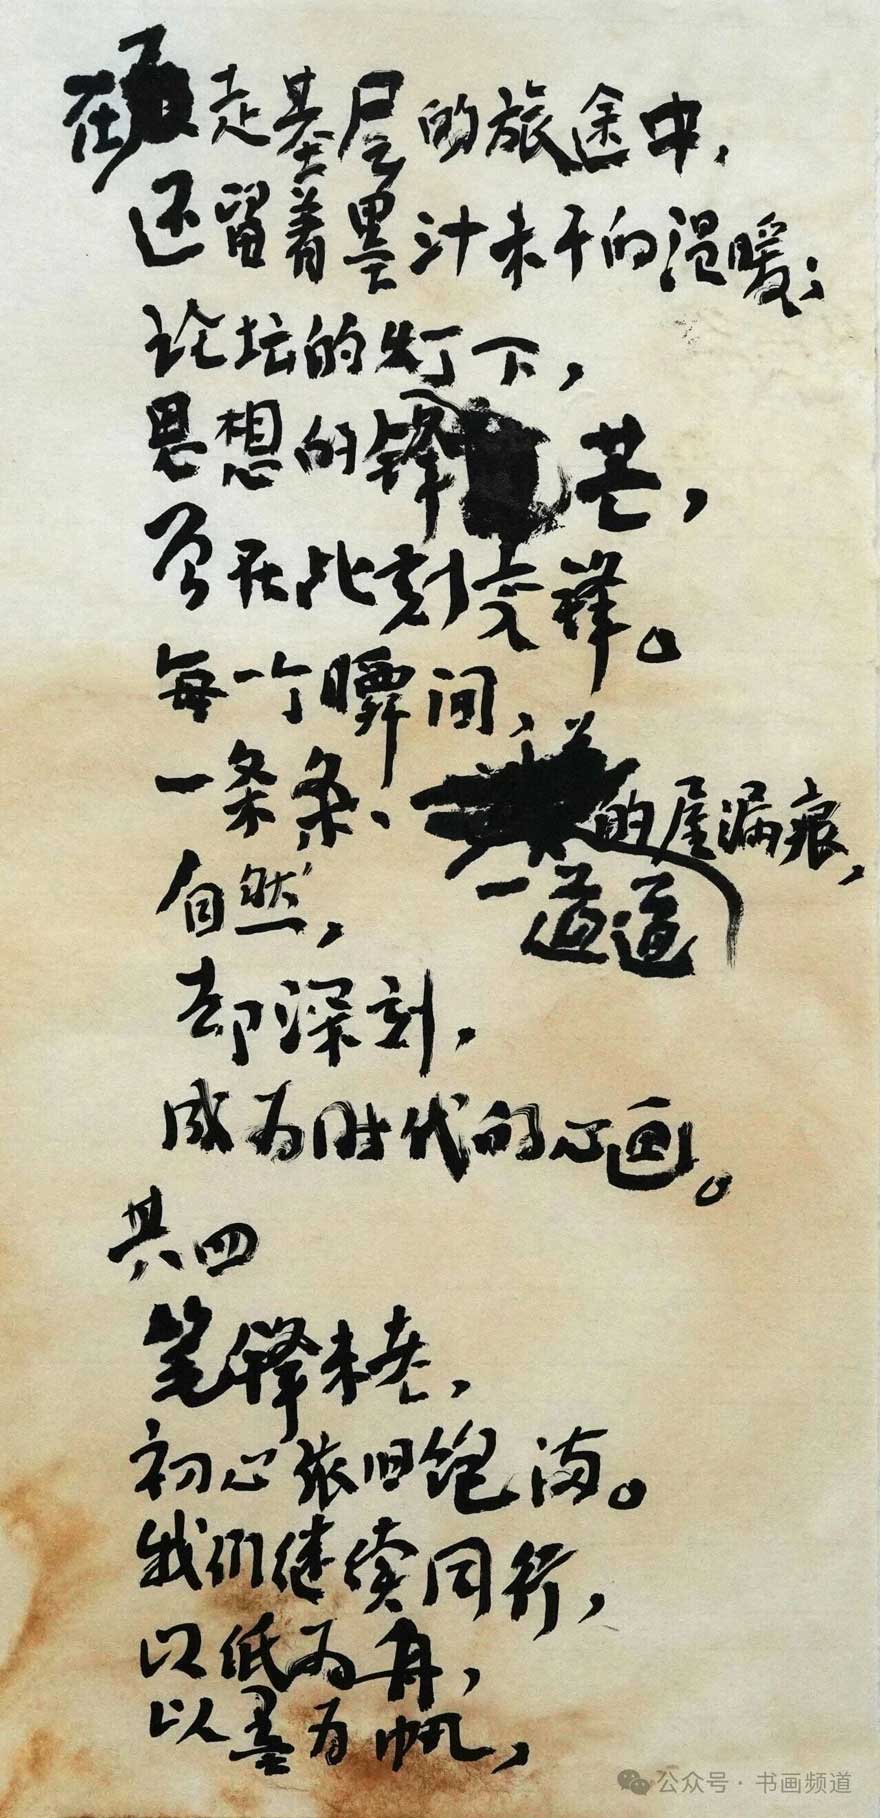 在走基层的旅途中，
还留着墨汁未干的温暖；
论坛的灯下，
思想的锋芒，
在此刻交锋。
每一个瞬间，
一条条、的屋漏痕，
一道道
自然，
却深刻，
成为时代的心画。
其四
笔锋未老，
初心依旧饱满。
我们继续同行，
以纸为舟，
以墨为帆，
公众号·书画频道